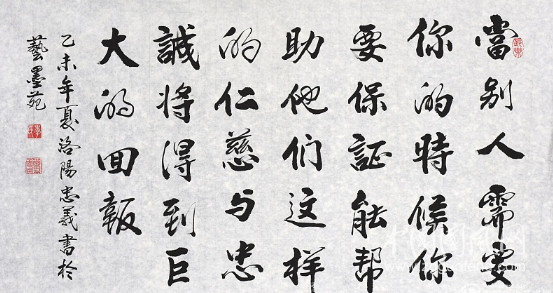 當别人需要
你的時候你
要保証能帮
助他们这样
的仁慈与忠
誠将得到巨
大的回報
乙未年夏洛陽忠義書於
藝墨苑